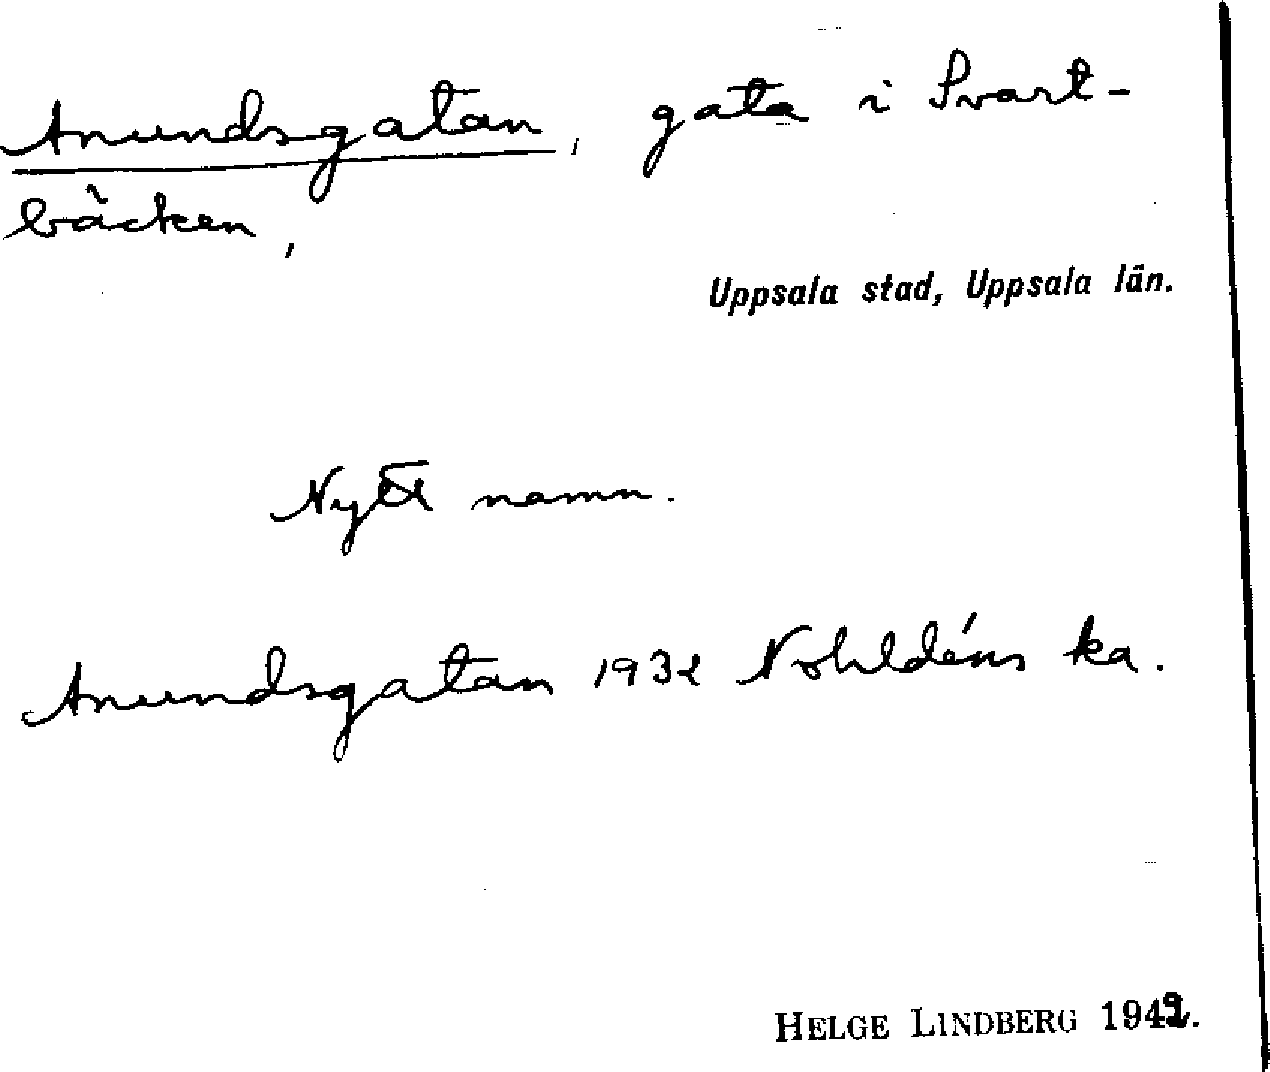 Anundsgatan, gata i Svart-
bäcken,
Uppsala stad, Uppsala län.
Nytt namn.
Anundsgatan 1932 Nohldéns ka.
HELGE LINDBERG 1942.